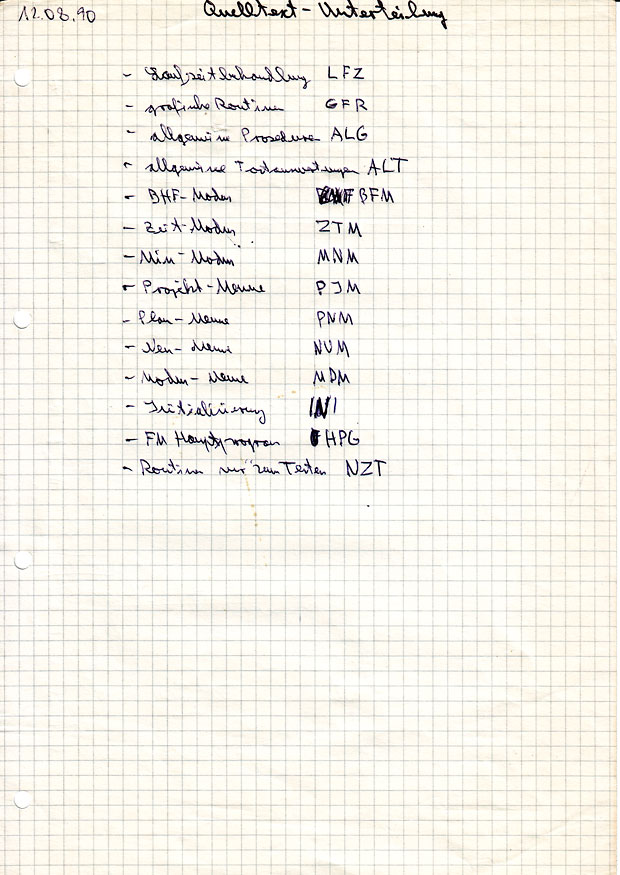 12.08.90
Quelltext-Unterteilung
- Laufzeitbehandlung LFZ
- grafische Routinen GFR
- allgemeine Prozeduren ALG
- allgemeine Tastauswertungen ALT
- BHF-Modus BFM
- Zeit-Modus ZTM
- Min-Modus MNM
- Projekt-Menue PJM
- Plan-Menue PNM
- Neu-Menue NUM
- Modus-Menue MDM
- Initialisierung INI
- FM Hauptprogram HPG
- Routinen nur zum Testen NZT